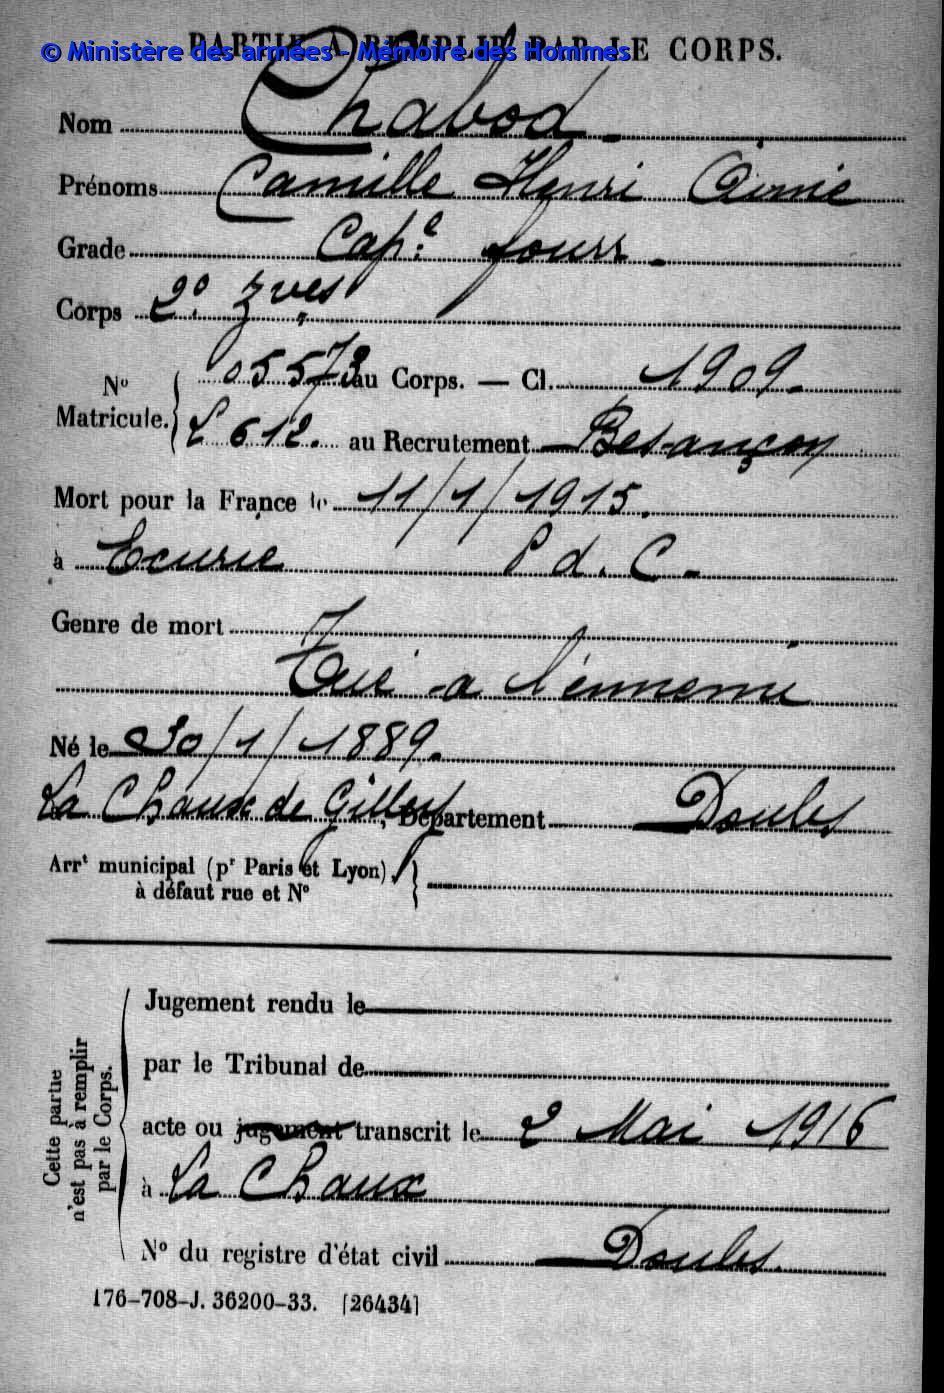 PARTIE A REMPLIR PAR LE CORPS.
© Ministère des armées - Mémoire des Hommes
Nom Chabod
Prénoms Camille Henri Aimé
Grade Cap.l fourr
Corps 2e Zves
No Matricule. 05573 au Corps. — Cl. 1909
L 612. au Recrutement Besançon
Mort pour la France le 11/1/1915.
à Ecurie P d. C
Genre de mort
Tué à l'ennemi
Né le 30/1/1889.
La Chaux de Gilley, Département Doubs
Arrt municipal (pr Paris et Lyon),
à défaut rue et No
Cette partie n'est pas à remplir par le Corps.
Jugement rendu le
par le Tribunal de
acte ou jugement transcrit le 2 Mai 1916
à La Chaux
No du registre d'état civil Doubs.
176-708-J. 36200-33. [26434]